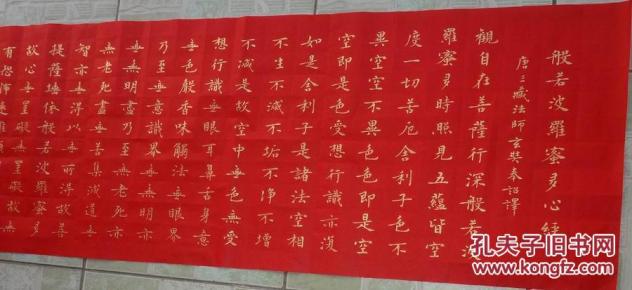 般若波羅蜜多心經
唐三藏法師玄奘奉詔譯
觀自在菩薩行深般若波
羅蜜多時照見五蘊皆空
度一切苦厄舍利子色不
異空空不異色色即是空
空即是色受想行識亦復
如是舍利子是諸法空相
不生不滅不垢不淨不增
不減是故空中無色無受
想行識無眼耳鼻舌身意
無色聲香味觸法無眼界
乃至無意識界無無明亦
無無明盡乃至無老死亦
無老死盡無苦集滅道無
智亦無得以無所得故菩
提薩埵依般若波羅蜜多
故心無罣礙無罣礙故無
有恐怖遠離
孔夫子旧书网
www.kongfz.com